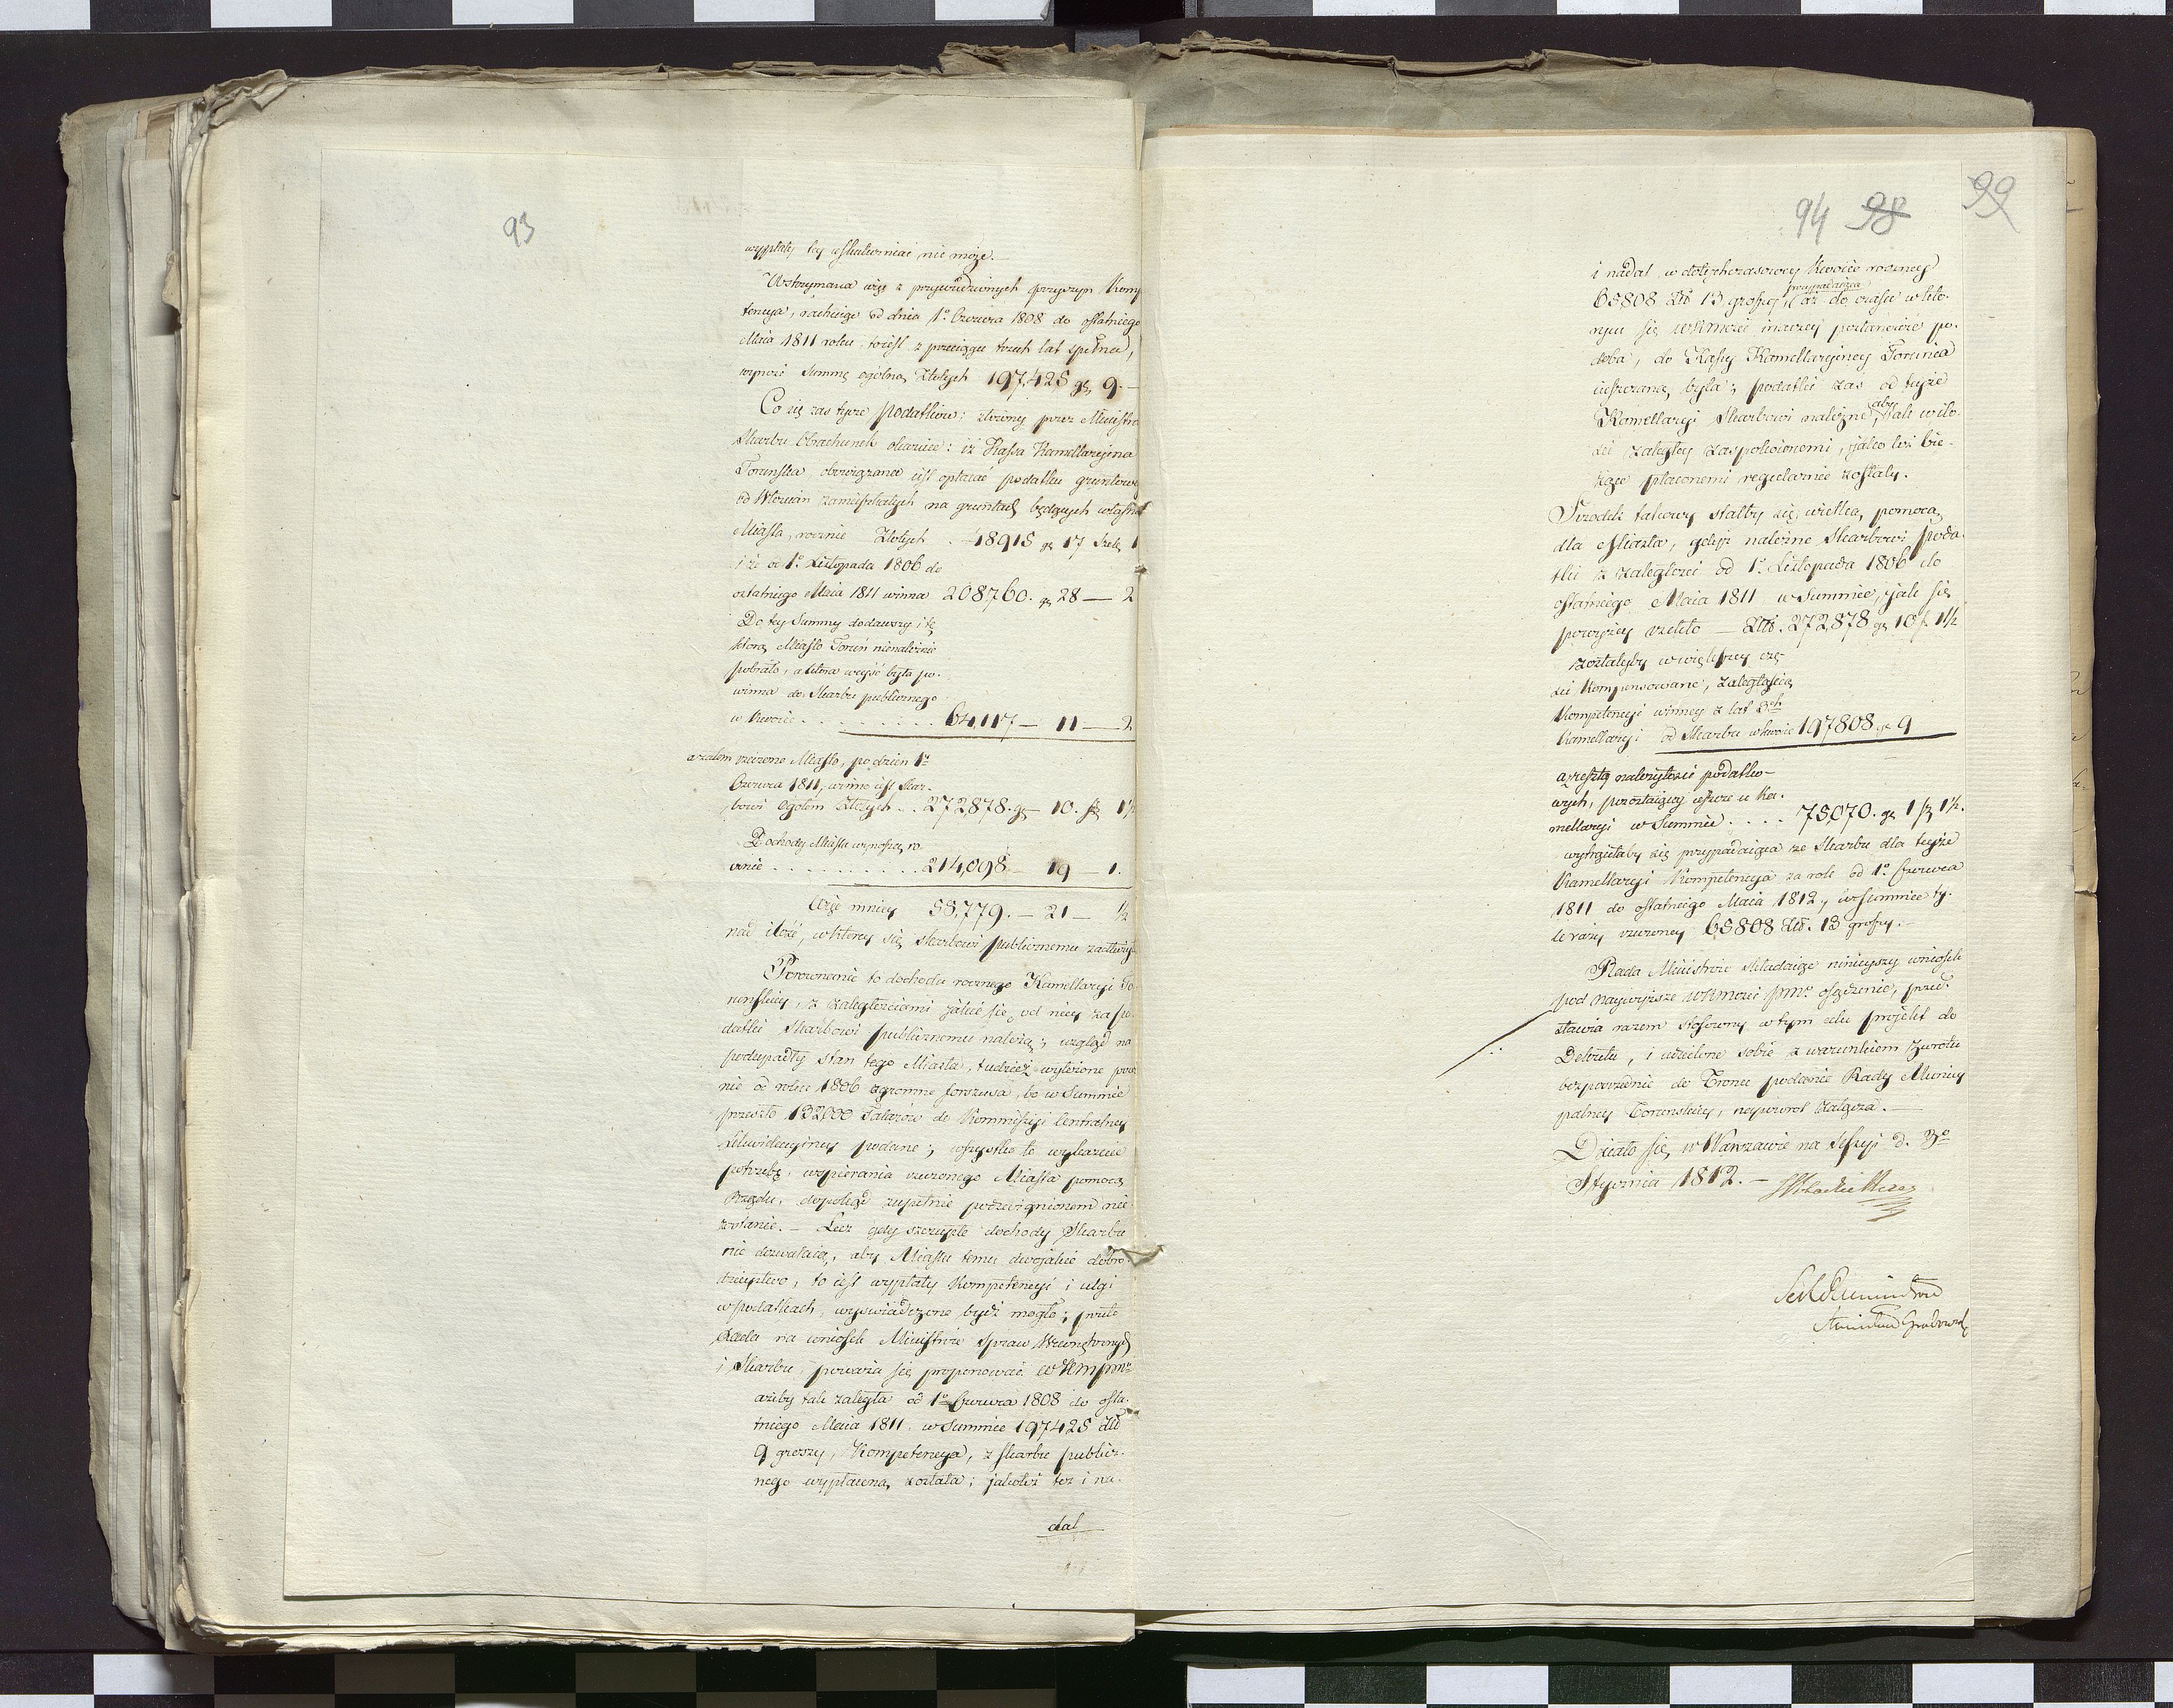 93
wypłaty tey uskuteczniać nie może.
Wstrzymana więc z przywiedzionych przyczyn Kompe
tencya, rachuiąc od dnia 1o Czerwca 1808 do ostatniego
Maia 1811 roku, to iest z przeciągu trzech lat zpełna,
wynosi Summę ogólną Złotych 197,425 gr 9.—
Co się zas tycze podatków; złożony przez Ministra
Skarbu Obrachunek okazuie: iż Kassa Kamellaryina
Torunska obowiązana iest opłacać podatku gruntowe
od Włościan zamieszkałych na gruntach będących własno
Miasta, rocznie Złotych . 48915 gr 17 Szel. 1
i że od 1o Listopada 1806 do
ostatniego Maia 1811 winna 208760. gr 28 — 2
Do tey Summy dodawszy i tę
którą Miasto Toruń nienależnie
pobrało, a która weyść była po-
winna do Skarbu publicznego
w kwocie . . . . . . . . . 64,117 — 11 — 2
a zatem rzeczone Miasto, po dzien 1o
Czerwca 1811, winno iest Skar-
bowi ogołem Złotych . . 272878. gr — 10. sz 1½
Dochody Miasta wynoszą ro
cznie . . . . . . . . . . 214,098 — 19 — 1.
Więc mniey 58,779. — 21 — ½
nad ilość, w którey się skarbowi publicznemu zadłuży
Porownanie to dochodu rocznego Kamellaryi To
runskiey, z zaległościami iakie się od niey za po
datki Skarbowi publicznemu należą; wzgląd na
podupadły stan tego Miasta, tudzież wyłożone prze
nie od roku 1806 ogromne forszusa, bo w Summie
przeszło 132000 Talarów do Kommissyi Centralney
Likwidacyiney podane; wszystko to wykazuie
potrzebę, wspierania rzeczonego Miasta pomocą
Rządu, dopokąd zupełnie podzwignionem nie
zostanie.— Lecz gdy szczupłe dochody Skarbu
nie dozwalaią, aby Miastu temu dwojakie dobro-
dzieystwo, to iest wypłaty Kompetencyi i ulgi
w podatkach, wyswiadczone bydź mogło; przeto
Rada na wniosek Ministrów Spraw Wewnętrznych
i Skarbu, poważa się proponować WKMPmu
ażeby tak zaległa od 1o Czerwca 1808 do osta-
tniego Maia 1811 w Summie 197425 Złł
9 groszy, Kompetencya, z Skarbu publicz-
nego wypłaconą została; jakoteż też i na-
dal
94 98 99
i nadal w dotychczasowey kwocie roczney
przypadaiąca
65808 Złł 13 groszy, aż do czasu w któ-
rym się WKMości inaczey postanowić po-
doba, do Kassy Kamellaryiney Torunia
uiszczaną była; podatki zas od teyże
Kamellaryi Skarbowi należne, aby tak w ilo-
ści zaległey zaspokoionemi, jako też bie-
żące płaconemi regularnie zostały.
Srodek takowy stałby się wielką pomocą
dla Miasta, gdyż należne Skarbowi poda-
tki z zaległości od 1o Listopada 1806 do
ostatniego Maia 1811 w Summie, jak się
powyżey rzekło — Złł. 272,878 gr 10 s. 1½
zostałyby w większey czę-
ści kompensowane, zaległością
Kompetencyi winney z lat 3ch
Kamellaryi od Skarbu w kwocie 197808 gr 9
a resztę należytości podatko-
wych, pozostaiącey ieszcze u Ka-
mellaryi w Summie . . . . 75070. gr 1 sz 1½.
wytrąciłaby się przypadaiąca ze Skarbu dla teyże
Kamellaryi Kompetencya za rok od 1o Czerwca
1811 do ostatniego Maia 1812, w Summie ty-
le razy rzeczoney 65808 Złł. 13 groszy.—
Rada Ministrów składaiąc ninieyszy wniosek
pod naywyższe WKMości Pmo osądzenie, przed-
stawia razem stosowny w tym celu projekt do
Dekretu, i udzielone sobie z warunkiem zwrotu
bezposrednie do Tronu podanie Rady Municy
palney Torunskiey, na powrot załącza.—
Działo się w Warszawie na Sessyi d. 3o
Stycznia 1812.—